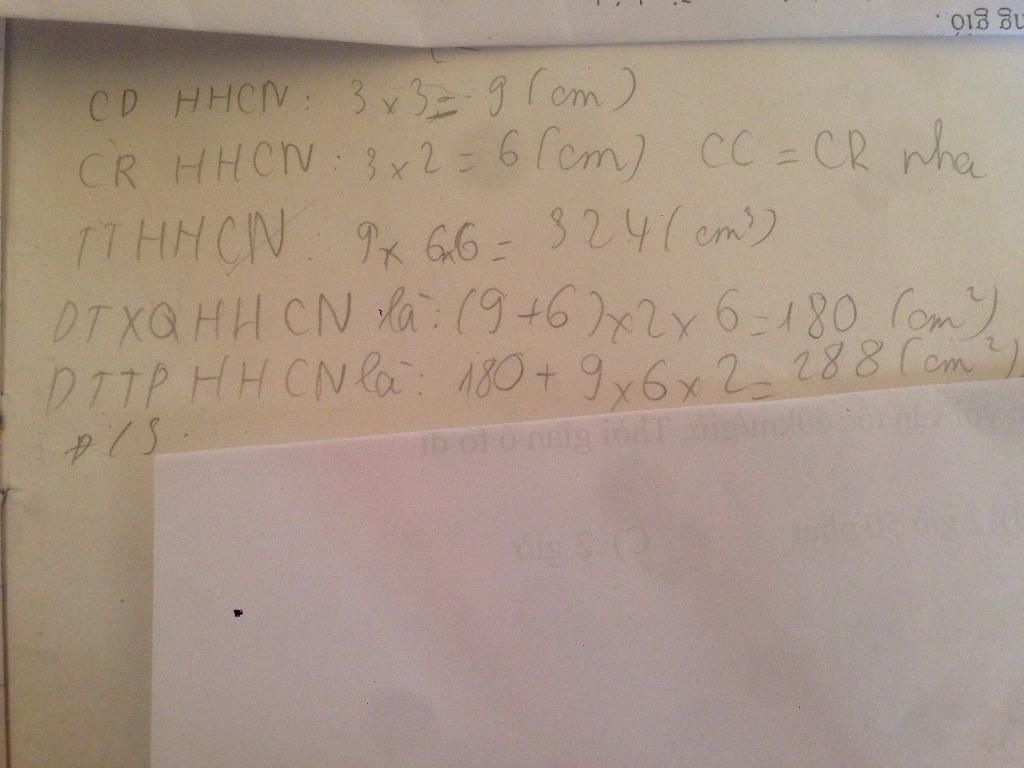 ng giờ.
CD HHCN: 3 x 3 = 9 (cm)
CR HHCN: 3 x 2 = 6 (cm) CC = CR nha
TTHHCN: 9 x 6 x 6 = 324 (cm³)
DTXQHHCN là: (9 + 6) x 2 x 6 = 180 (cm²)
DTTPHHCN là: 180 + 9 x 6 x 2 = 288 (cm²)
Đ/S.
vận tốc 60km/giờ, Thời gian ô tô đi
2 giờ 50 phút C) 2 giờ